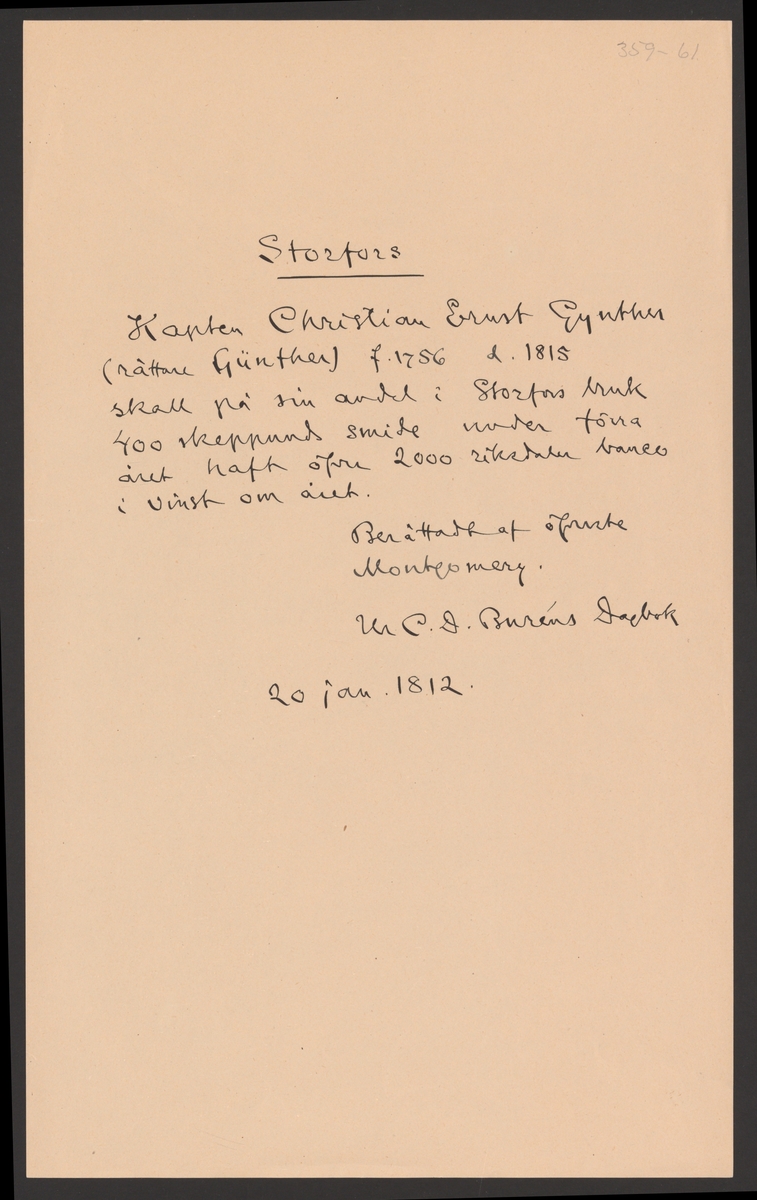 359-61
Storfors
Kapten Christian Ernst Gynther
(rättare Günther) f. 1756 d. 1815
skall på sin andel i Storfors bruk
400 skeppunds smide under förra
året haft öfver 2000 riksdaler banco
i vinst om året.
Berättadt af öfverste
Montgomery.
Ur C. D. Buréns Dagbok
20 jan. 1812.